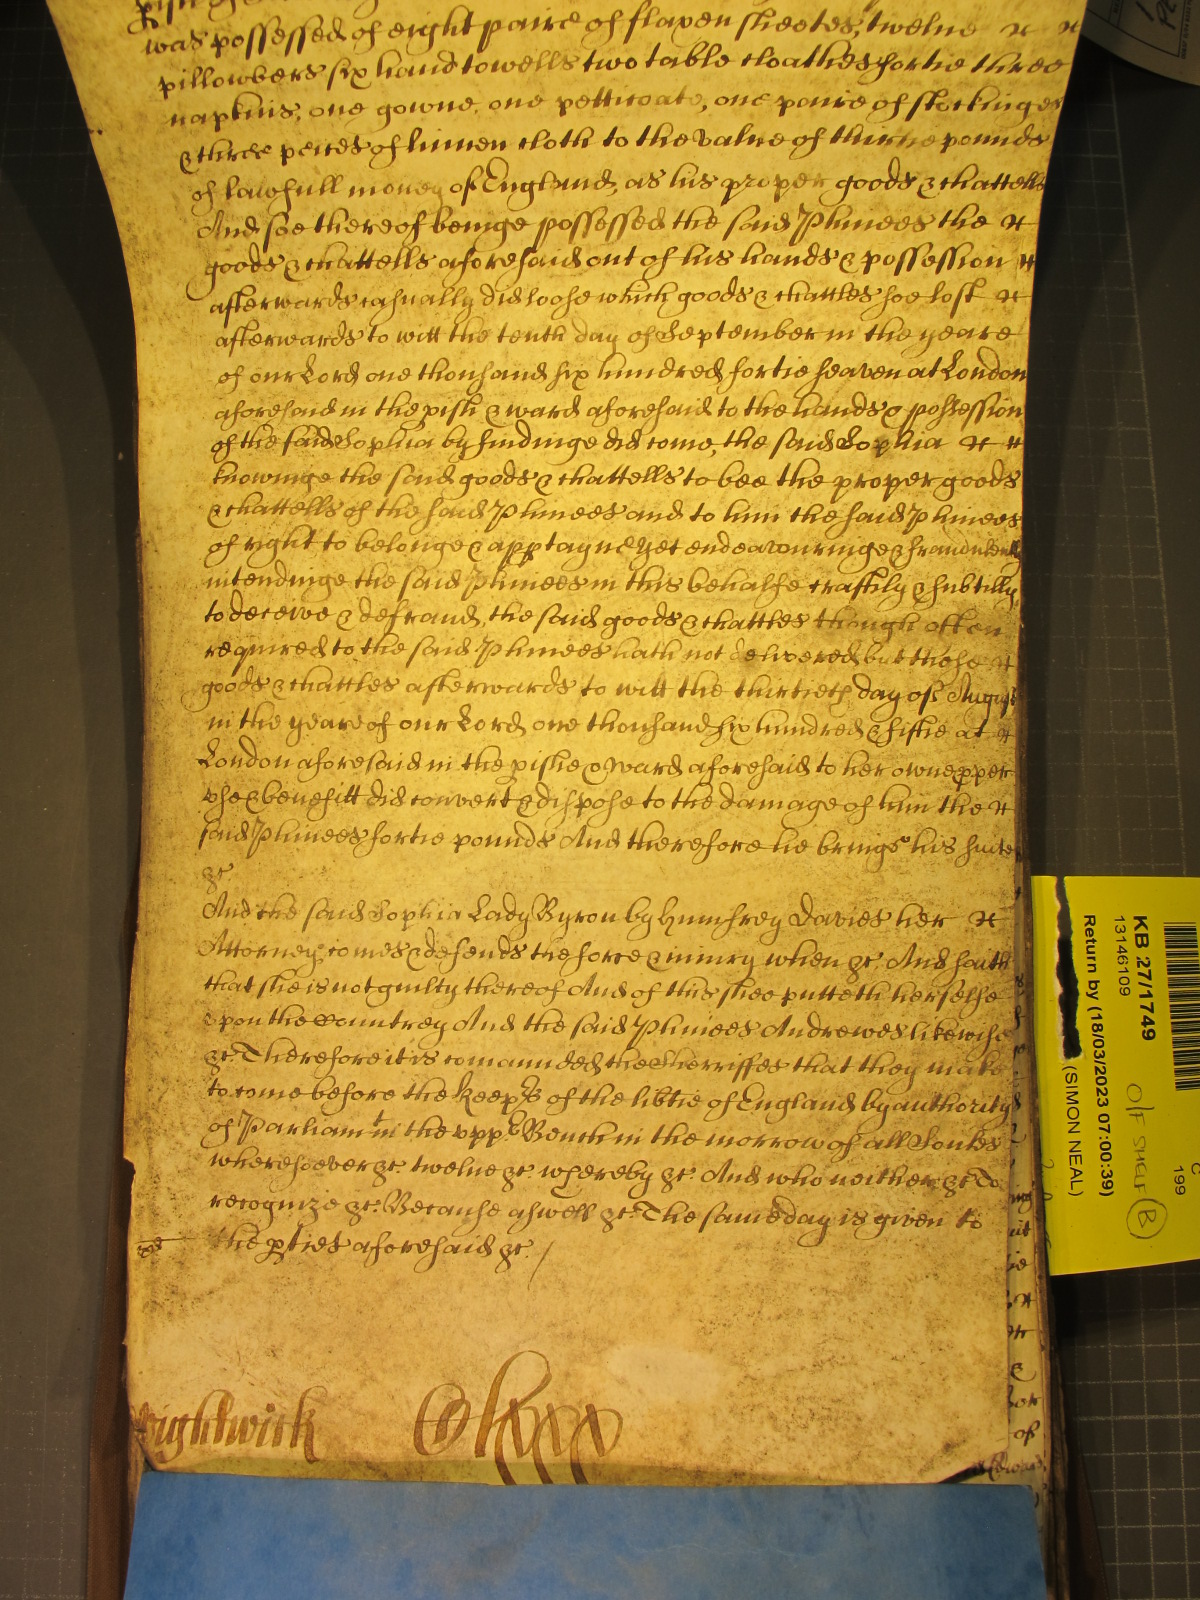 was possessed of eight paire of flaxen sheetes, twelue &c &c
pillowbers six hand towells two table cloathes fortie three
napkins, one gowne, one petticoate, one paire of stockinges
& three peices of linnen cloth to the value of pounds
of lawfull money of England, as his proper goods & chattells
And soe thereof beinge possessed the said Phinees the &c
goods & chattells aforesaid out of his hands & possession &c
afterwards casually did loose which goods & chattles soe lost &c
afterwards to witt the tenth day of September in the yeare
of our Lord one thousand six hundred fortie seaven at London
aforesaid in the pish & ward aforesaid to the hands & possession
of the said Sophia by findinge did come, the said Sophia &c &c
knowinge the said goods & chattells to bee the proper goods
& chattells of the said Phinees and to him the said Phinees
of right to belonge & apptayne yet endeavouringe & fraudulently
intendinge the said Phinees in this behalfe craftily & subtilly
to deceive & defraud, the said goods & chattles though often
required to the said Phinees hath not delivered but those &c
goods & chattles afterwards to witt the thirtieth day of August
in the yeare of our Lord one thousand six hundred & fiftie at &c
London aforesaid in the pishe & Ward aforesaid to her owne pper
vse & benefitt did convert & dispose to the damage of him the &c
said Phinees fortie pounds And therefore he brings his suite
&c
And the said Sophia Lady Byron by Humfrey Davies her &c
Attorney comes & defends the force & iniury when &c. And saith
that she is not guilty thereof And of this shee putteth herselfe
vpon the Countrey And the said Phinees Andrewes likewise
&c Therefore it is comaunded the Sherriffes that they make
to come before the keeprs of the libtie of England by authority
of Parliamt in the vppr Bench in the morrow of all Soules
wheresoever &c. twelue &c. whereby &c. And who neither &c To
recognize &c. Because aswell &c. The same day is given to
the pties aforesaid &c. /
Wightwick
lxxx
KB 27/1749
13146109
Return by (18/03/2023 07:00:39)
(SIMON NEAL)
O/F SHELF B
C
199